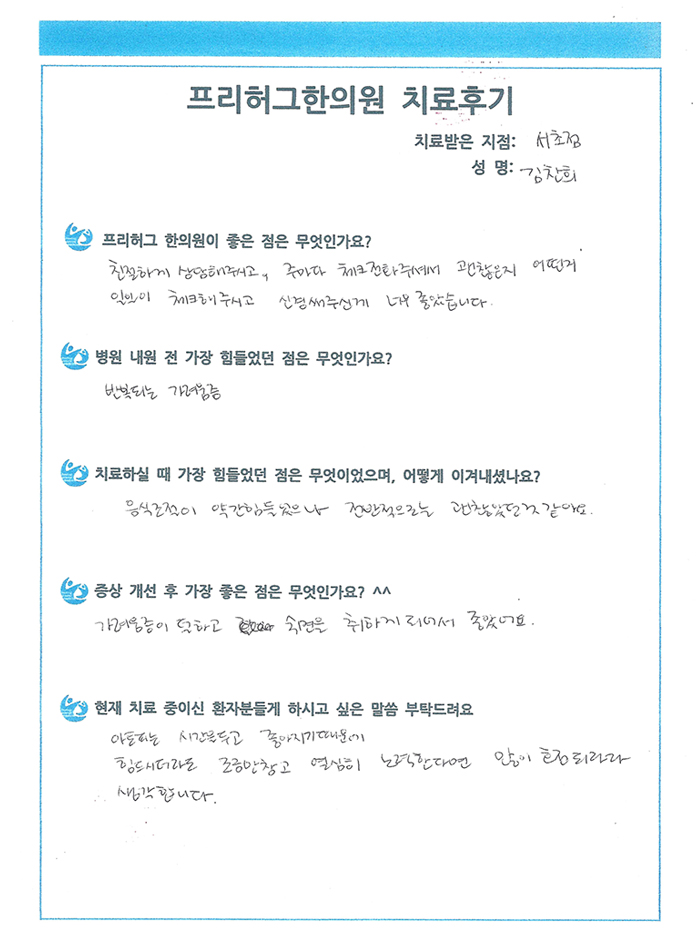 프리허그한의원 치료후기
치료받은 지점: 서초점
성 명: 김찬희
프리허그 한의원이 좋은 점은 무엇인가요?
친절하게 상담해주시고, 주마다 체크전화주셔서 괜찮은지 어떤지
일일이 체크해주시고 신경써주신게 너무 좋았습니다.
병원 내원 전 가장 힘들었던 점은 무엇인가요?
반복되는 가려움증
치료하실 때 가장 힘들었던 점은 무엇이었으며, 어떻게 이겨내셨나요?
음식조절이 약간힘들었으나 전반적으로는 괜찮았던것 같아요.
증상 개선 후 가장 좋은 점은 무엇인가요? ^^
가려움증이 덜하고 숙면을 취하게 되어서 좋았어요.
현재 치료 중이신 환자분들게 하시고 싶은 말씀 부탁드려요
아토피는 시간을두고 좋아지기때문에
힘드시더라도 조금만참고 열심히 노력한다면 많이 호전되리라
생각합니다.